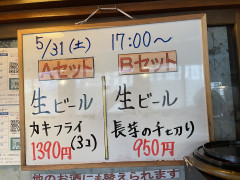 5/31(土) 17:00～
Aセット
生ビール
カキフライ
(3コ)
1390円
Bセット
生ビール
長芋の千切り
950円
他のお酒にも替えられます